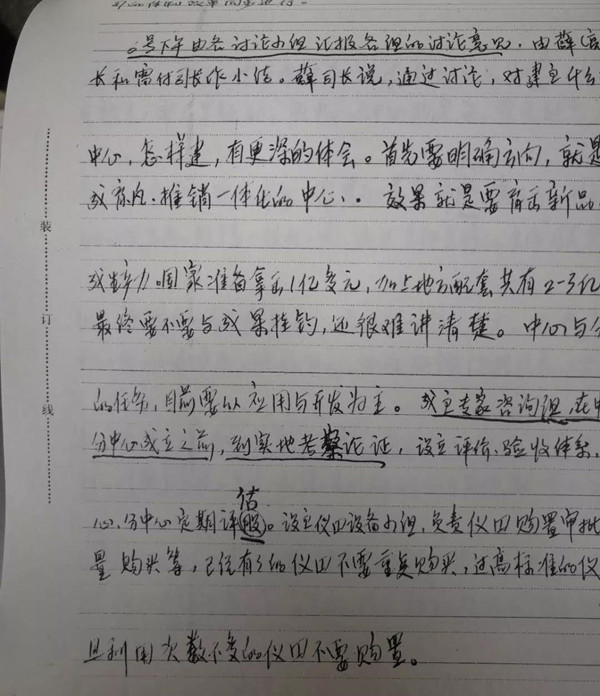 下午由各讨论小组汇报各组的讨论意见，由薛
长和需付司长作小结。薛司长说，通过讨论，对建立什么
中心，怎样建，有更深的体会。首先要明确方向，就是
或育、推销一体化的中心、。效果就是要育出新品
或生产。国家准备拿出1亿多元，加上地方配套共有2-3亿
最终要不要与成果挂钩，还很难讲清楚。中心与分
的任务，目前要以应用与开发为主。成立专家咨询组，在中
分中心成立之前，到实地考察论证，设立评价、验收体系，
估
心、分中心定期评股。设立仪田设备小组，负责仪田购置审批
量购买等，已经有了的仪田不要重复购买，过高标准的仪
且利用次数不多的仪田不要购置。
装
订
线